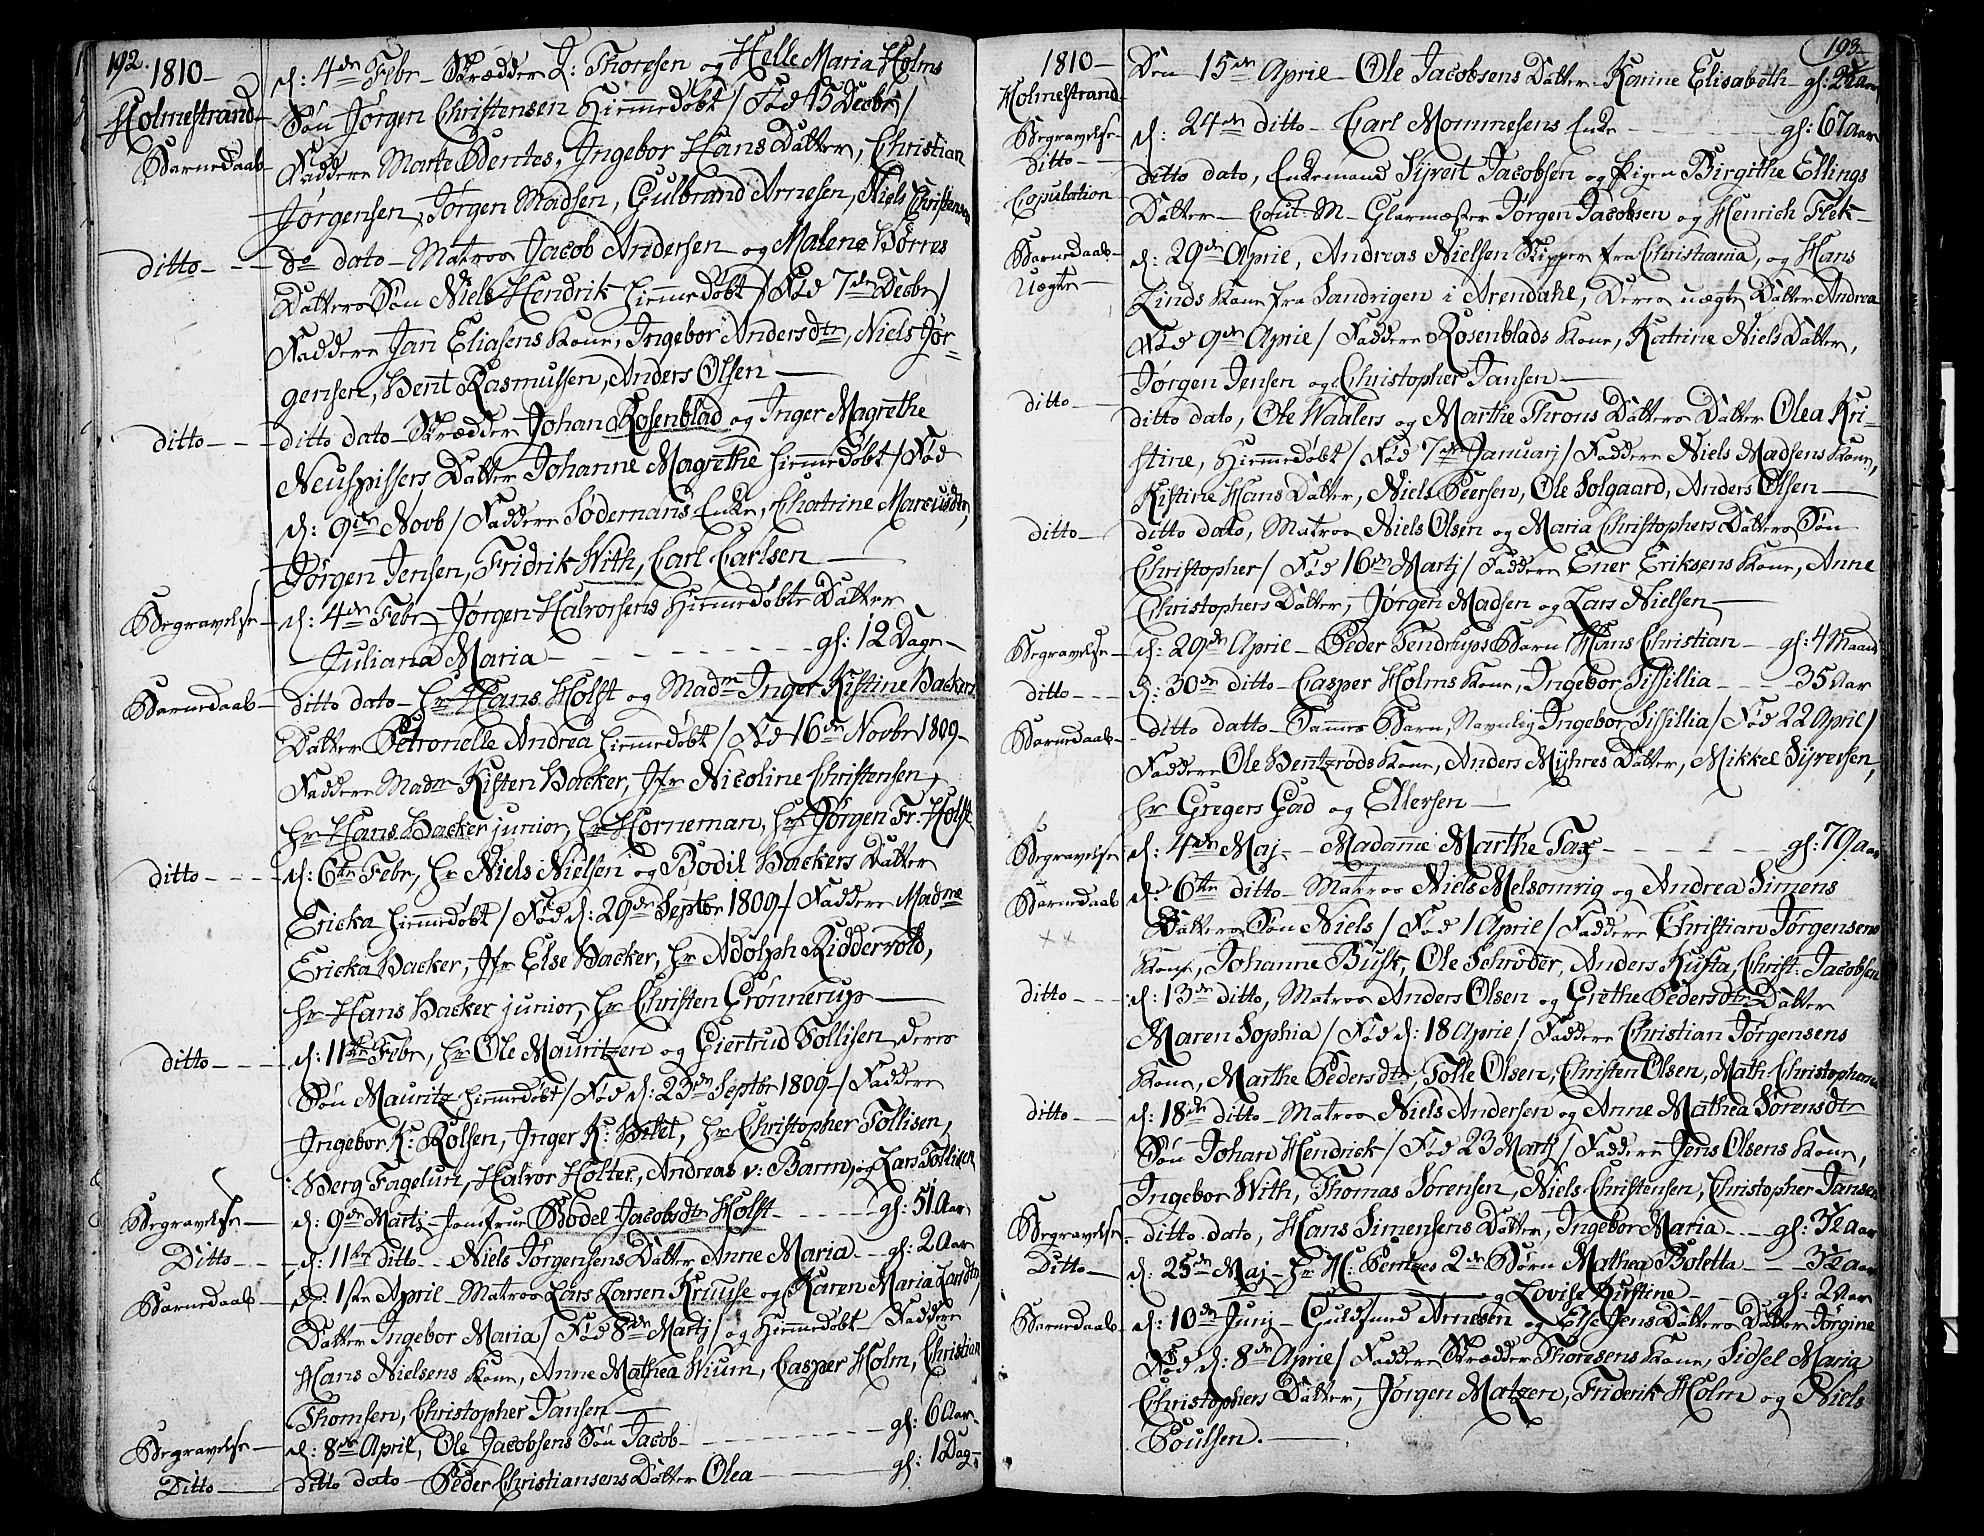 192. 1810
Holmestrand
d: 4de Febr Skrædder L: Thoresen og Helle Maria Holms
Søn Jørgen Christensen Hiemmedøbt / Fød 15 Decbr /
Barnedaab
Faddere Marte Bentes, Ingebor Hans Datter, Christian
Jørgensen, Jørgen Madsen, Gulbrand Arnesen, Niels Christensen
ditto
do dato Matros Jacob Andersen og Malene Børres
Datters Søn Niels Hendrik hiemmedøbt / Fød 7de Decbr /
Faddere Jan Eliasens Kone, Ingebor Andersdtr, Niels Jør-
gensen, Bent Rasmussen, Anders Olsen
ditto
ditto dato Skrædder Johan Rosenblad og Inger Magrethe
Neuspissers Datter Johanne Magrethe hiemmedøbt / Fød
d: 9de Novb / Faddere Sødermans Enke, Chatrine Marcusdtr,
Jørgen Jensen, Fridrik With, Carl Carlsen
Begravelse
d: 4de Febr Jørgen Halvorsens Hiemmedøbte Datter
Juliana Maria gl: 12 Dage
Barnedaab
ditto dato hr Hans Holst og Madm Inger Kistine Backers
Datter Petronelle Andrea hiemmedøbt / Fød 16de Novbr 1809
Faddere Madm Kisten Backer, Jfr Nicoline Christensen,
hr Hans Backer junior, hr Horneman, hr Jørgen Fr: Holst
ditto
d: 6te Febr, hr Niels Nielsen og Bodil Backers Datter
Ericka hiemmedøbt / Fød d: 29de Septbr 1809 / Faddere Madme
Ericka Backer, Jfr Else Backer, hr Adolph Riddervold,
hr Hans Backer junior, hr Christen Grønnerup
ditto
d: 11te Febr, hr Ole Mauritzen og Giertrud Tollisen deres
Søn Mauritz hiemmedøbt / Fød d: 23de Septbr 1809 / Faddere
Ingebor K: Rolsen, Inger K: hr Christopher Tollisen,
Berg Fagelun, Halvor Holter, Andreas v: Barm, og Lars Tollisen
Begravelse
d: 9de Martj Jomfrue Bodel Jacobsdtr Holst gl: 51 Aar
Ditto
d: 11te ditto Niels Jørgensens Datter Anne Maria gl: 2 Aar
Barnedaab
d: 1ste April Matros Lars Larsen Kruuse og Karen Maria Larsdtrs
Datter Ingebor Maria / Fød 8de Martj / og Hiemmedøbt Faddere
Hans Nielsens Kone, Anne Mathea Wium, Casper Holm, Christian
Thomsen, Christopher Jansen
Begravelse
d: 8de April, Ole Jacobsens Søn Jacob gl: 6 Aar
Ditto
ditto dato Peder Christiansens Datter Olea gl: 1 Dag
193
1810
Den 15de Aprile Ole Jacobsens Datter Karine Elisabeth gl: 2 Aar
Holmestrand
Begravelse
d: 24de ditto Carl Mommesens Enke gl: 67 Aar
ditto
Copulation
ditto dato, Enkemand Sivert Jacobsen og Pigen Birgithe Ellings
Datter Cout: M Glarmæster Jørgen Jacobsen og Henrich Flek
Barnedaab
uægte
d: 29de Aprie, Andreas Nielsen Skipper fra Christiania, og Hans
Linds Kone fra Sandrigen i Arendahl, Deres uægte Datter Andrea
Fød 9de Aprie / Faddere Rosenblads Kone, Katrine Niels Datter,
Jørgen Jensen og Christopher Jansen
ditto
ditto dato, Ole Waalers og Marthe Throns Datters Datter Olea Kri-
stine, Hiemmedøbt / Fød 7de Januarj / Faddere Niels Madsens Kone,
Kistine Hans Datter, Niels Peersen, Ole Solgaard, Anders Olsen
ditto
ditto dato, Matros Niels Olsen og Maria Christophers Datters Søn
Christopher / Fød 16de Martj / Faddere Ener Eriksens Kone, Anne
Christophers Datter, Jørgen Madsen og Lars Nielsen
Begravelse
d: 29de April Peder Tendrups Barn Hans Christian gl: 4 Maand
ditto
d: 30de ditto Casper Holms Kone, Ingebor Sissillia 35 Aar
Barnedaab
ditto datto Sammes Barn, Navnlig Ingebor Sissillia / Fød 22 April /
Faddere Ole Bentzrøds Kone, Anders Myhres Datter, Mikkel Syversen,
hr Gregers Gad og Ellersen
Begravelse
d: 4de Maj Madame Marthe Fax gl: 79 Aar
Barnedaab
d: 6te ditto Matros Niels Melsomvig og Andrea Simens
Datters Søn Niels / Fød 1 April / Faddere Christian Jørgensens
Kone, Johanne Busk, Ole Schrøder, Anders Kusta, Christ: Jacobsen
ditto
d: 13de ditto, Matros Anders Olsen og Grethe Pedersdtr Datter
Maren Sophia / Fød d: 18 Aprie / Faddere Christian Jørgensens
Kone, Marthe Pedersdtr, Tolle Olsen, Christen Olsen, Math: Christophersen
ditto
d: 18de ditto Matros Niels Andersen og Anne Mathea Sørensdtr
Søn Johan Hendrick / Fød 23 Martj / Faddere Jens Olsens Kone,
Ingebor With, Thomas Sørensen, Niels Christensen, Christopher Jansen
Begravelse
ditto dato, Hans Simensens Datter, Ingebor Maria gl: 3½ Aar
Ditto
d: 25de Maj hr H: Bentzes 2de Børn Mathea Boletta 3½ Aar
og Lovise Kirstine gl: 2 Aar
Barnedaab
d: 10de Junj Guldsmed Arnesen og Else Jens Datters Datter Jørgine
Fød d: 8de Aprie / Faddere Skrædder Thoresens Kone, Sidsel Maria
Christophers Datter, Jørgen Matzen, Friderik Holm og Niels
Poulsen.